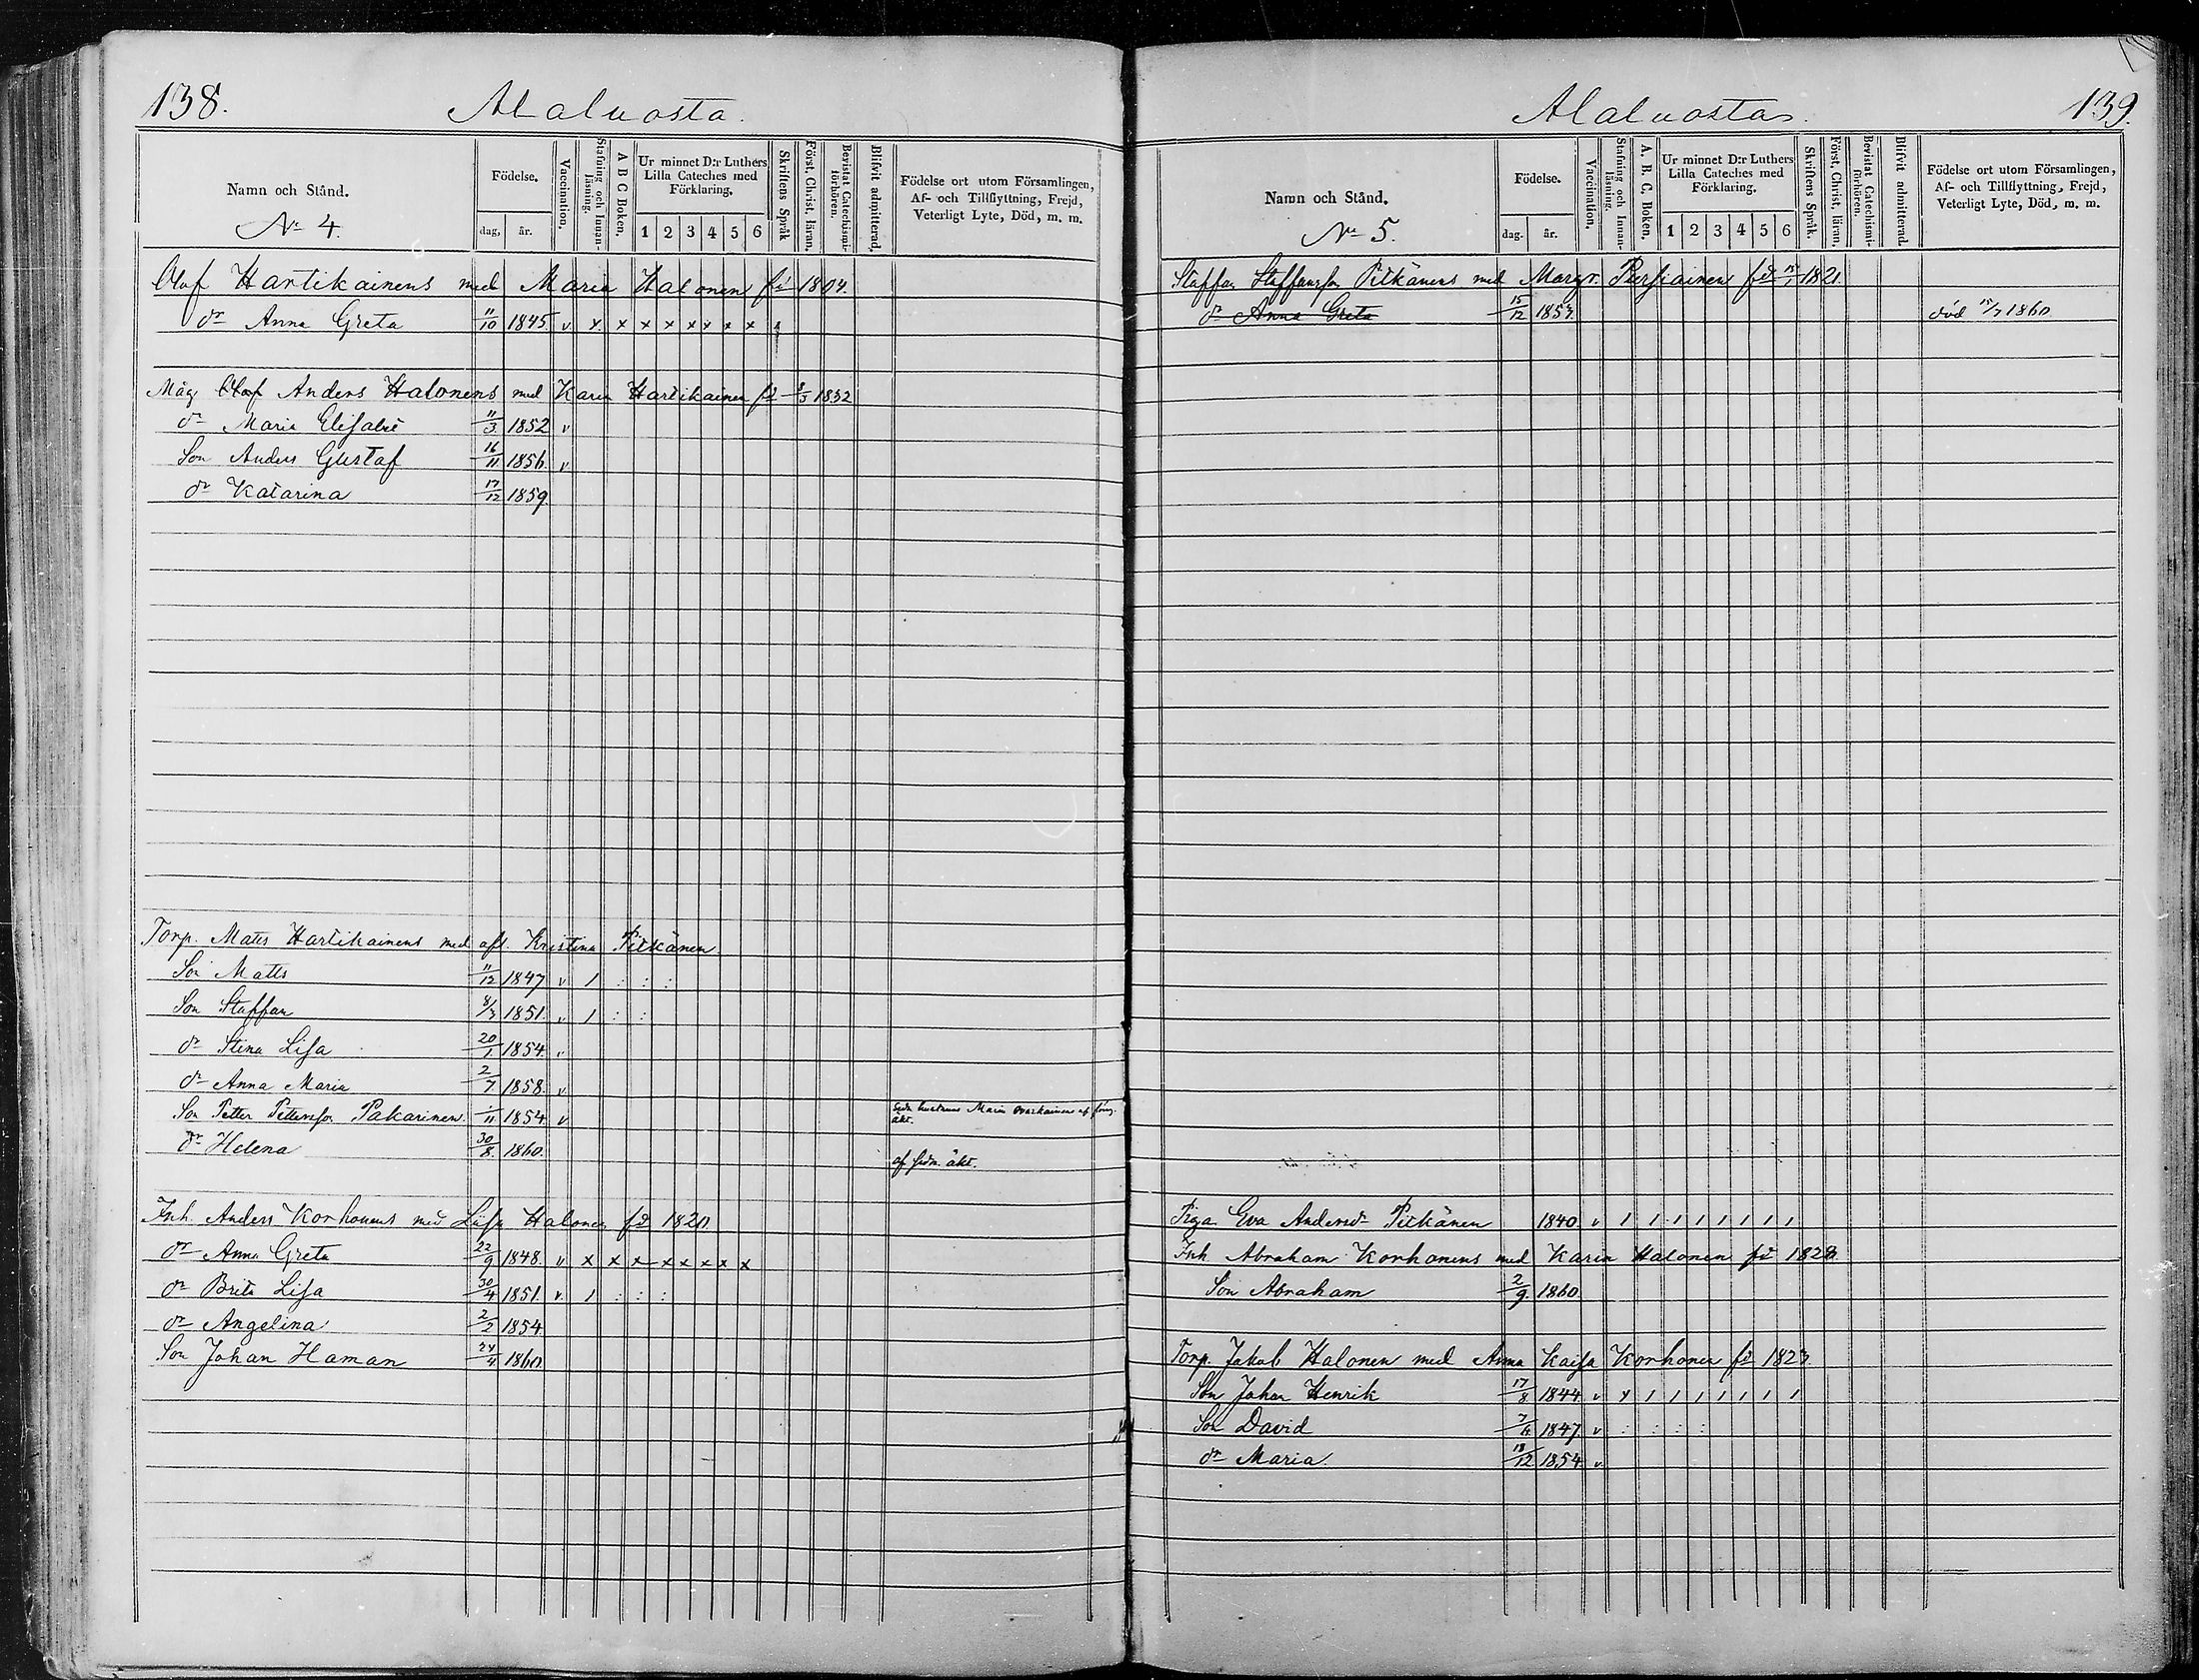 138.
Alaluosta.
Namn och Stånd.
No 4.
Födelse.
dag,
år.
Vaccination.
Stafning och Innan-läsning.
A B C Boken.
Ur minnet D:r Luthers Lilla Cateches med Förklaring.
1 2 3 4 5 6
Skriftens Språk
Först. Christ. läran.
Bevistat Catechismi-förhören.
Blifvit admitterad.
Födelse ort utom Församlingen, Af- och Tillflyttning, Frejd, Veterligt Lyte, Död, m. m.
Olof Hartikainens med Maria Halonen fd 1804.
dr Anna Greta 11/10 1845. v x x x x x x x x
Måg Olof Anders Halonens med Karin Hartikainen fd 8/3 1832
dr Maria Elisabet 11/3 1852 v
Son Anders Gustaf 16/11 1856. v
dr Katarina 17/12 1859.
Torp. Mats Hartikainens med afl. Kristina Pitkänen
Son Matts 11/12 1847 v / : : :
Son Staffan 8/3 1851. v / : :
dr Stina Lisa 20/1 1854. v
dr Anna Maria 2/7 1858. v
Son Petter Pettersson Pakarinen. 1/11 1854 v hustruns Maria af föreg. äkt.
dr Helena 30/8 1860. af sedn. äkt.
Inh. Anders Korhonens med Lisa Halonen fd 1820.
dr Anna Greta 22/9 1848. v x x x x x x x x
dr Brita Lisa 30/4 1851. v / : : :
dr Angelina 2/2 1854
Son Johan Haman 24/4 1860.
Alaluosta.
139.
Namn och Stånd.
No 5.
Födelse.
dag.
år.
Vaccination.
Stafning och Innan-läsning.
A. B. C. Boken.
Ur minnet D:r Luthers Lilla Cateches med Förklaring.
1 2 3 4 5 6
Skriftens Språk.
Först. Christ. läran.
Bevistat Catechismi-förhören.
Blifvit admitterad.
Födelse ort utom Församlingen, Af- och Tillflyttning, Frejd, Veterligt Lyte, Död, m. m.
Staffan Staffansson Pitkänens med Margr. Piirainen fd 1821.
dr Anna Greta 15/12 1857. död 15/7 1860
Piga Eva Andersdr Pitkänen 1840. v / / / / / / / /
Inh. Abraham Korhonens med Karin Halonen fd 1828.
Son Abraham 2/9. 1860
Torp. Jakob Halonen med Anna Kaisa Korhonen fd 1823.
Son Johan Henrik 17/8 1844. v x / / / / / / /
Son David 1847. v : : : :
dr Maria. 18/12 1854 v.